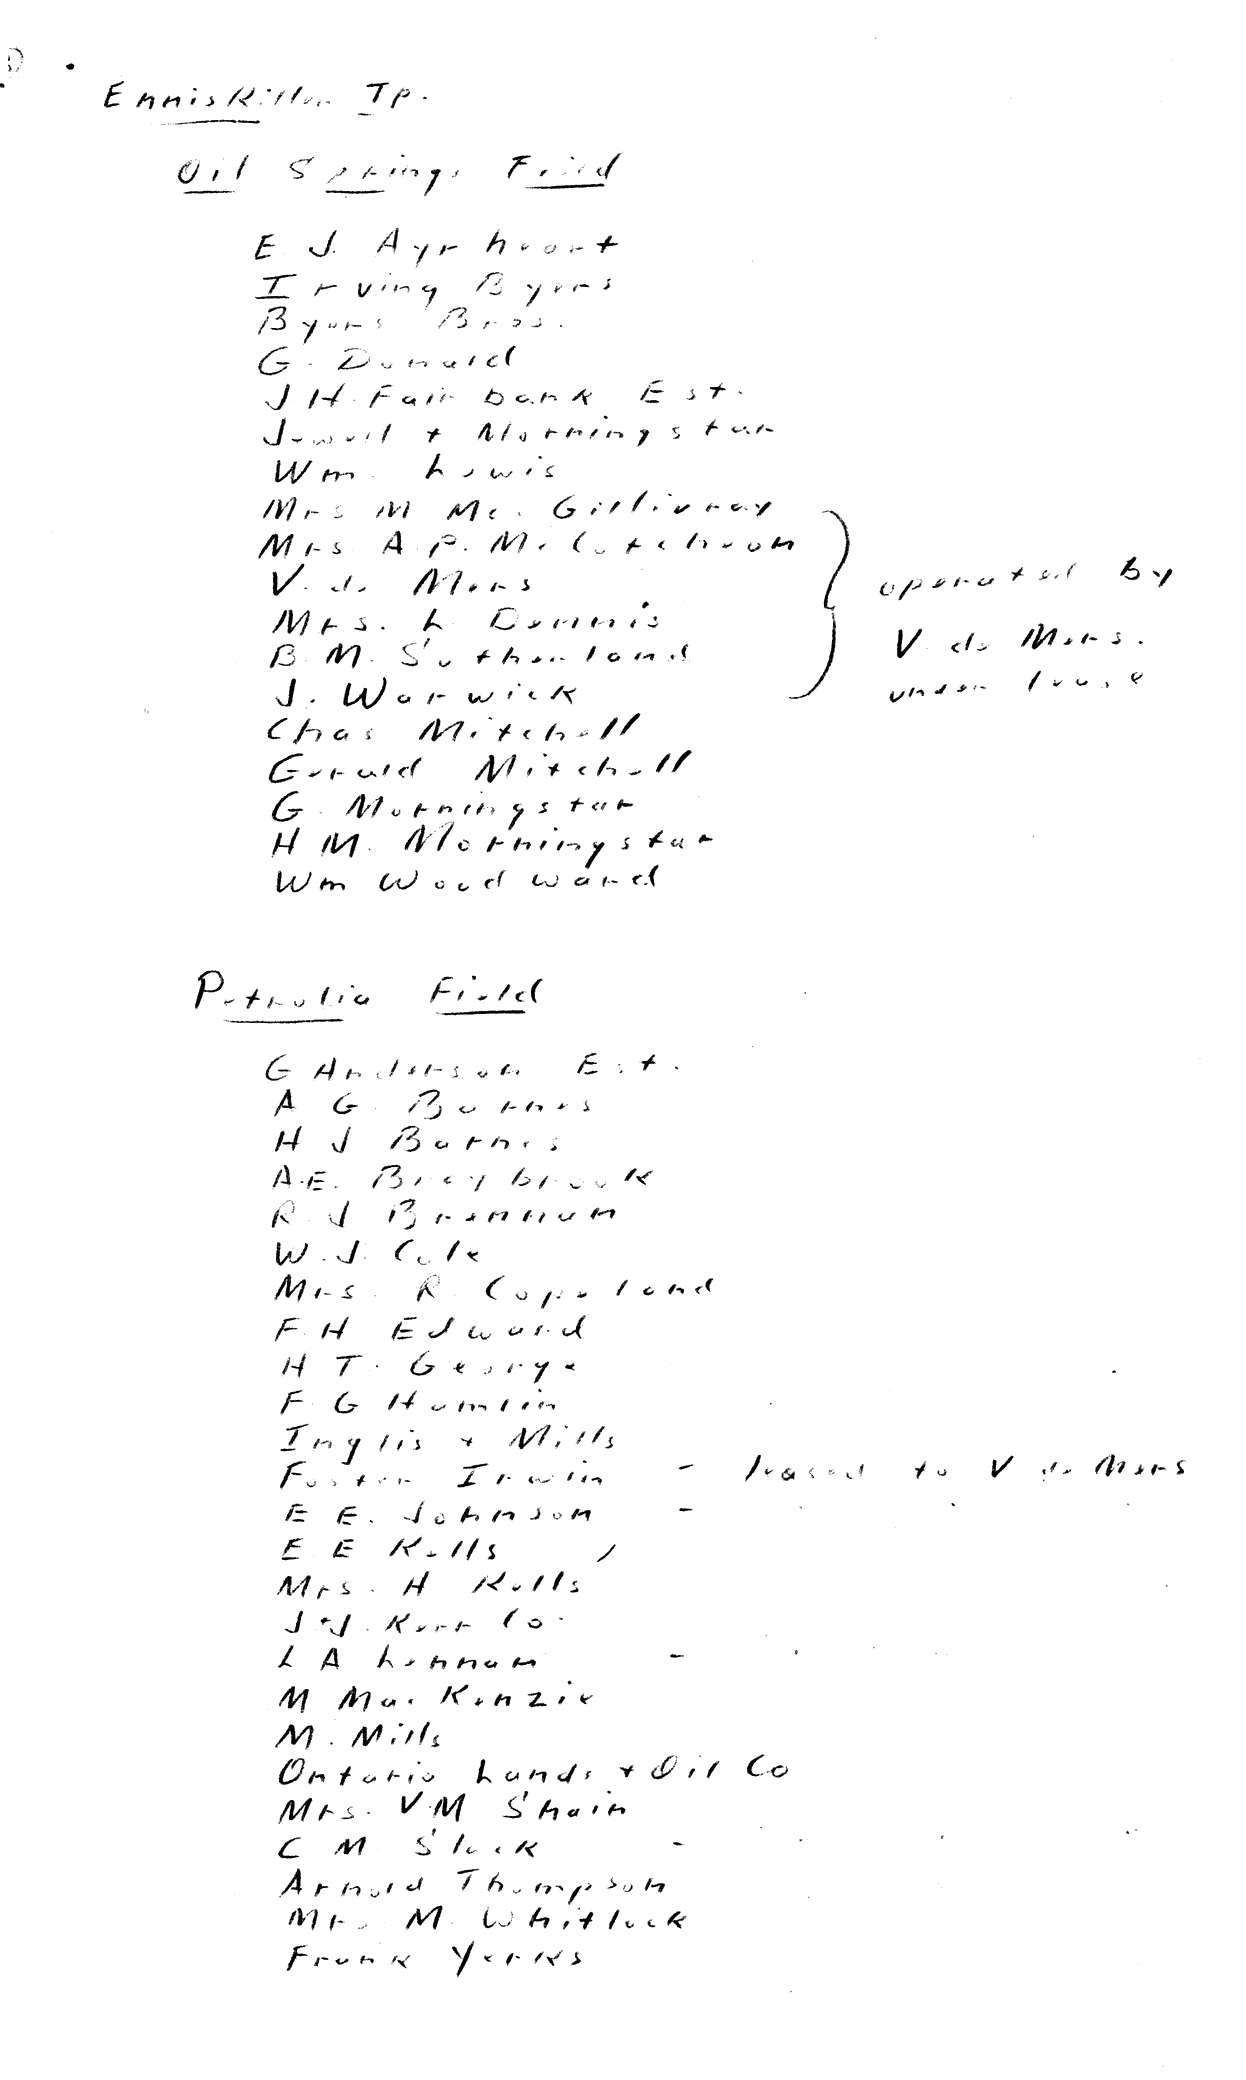 Enniskillen Tp.
Oil Springs Field
E. J. Ayrheart
Irving Byers
Byers Bros.
G. Donald
J H. Fairbank Est.
Jewell + Morningstar
Wm. Lewis
Mrs M Mc. Gillivray
Mrs. A. P. McCutcheon
V. de Mers
Mrs. L Dennis
B. M. Sutherland
J. Warwick
operated by
V. de Mers.
under lease
Chas Mitchell
Gerald Mitchell
G. Morningstar
H M. Morningstar
Wm Woodward
Petrolia Field
G Anderson Est.
A G. Barnes
H J Barnes
A.E. Braybrook
R. J Brennan
W. J. Cole
Mrs. R. Copeland
F. H Edward
H T. George
F G Hamlin
Inglis + Mills
Foster Irwin - leased to V de Mers
E E. Johnson -
E E Kells
Mrs. H Kells
J. J. Kerr Co.
L A Lennam -
M MacKenzie
M. Mills
Ontario Lands + Oil Co
Mrs. V.M Shain
C M Slack -
Arnold Thompson
Mrs. M. Whitlock
Frank Yerks